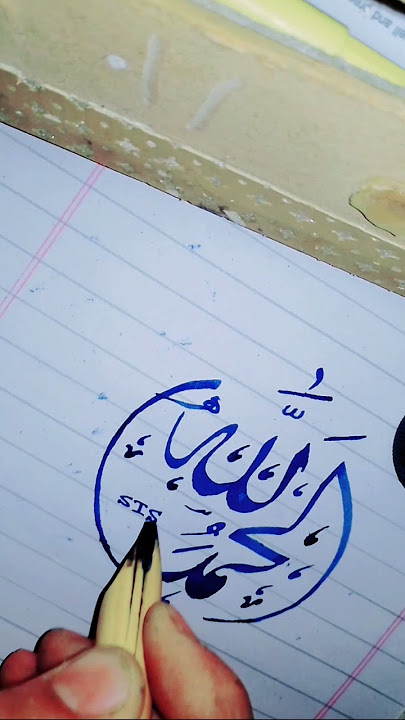 الحمد لله
SIS